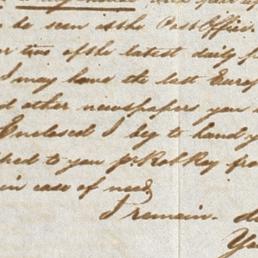 be seen at the Post Office.
two of the latest daily
I may have the last
other newspapers you
Enclosed I beg to hand
to you pr Rob Roy
in case of need.
I remain.